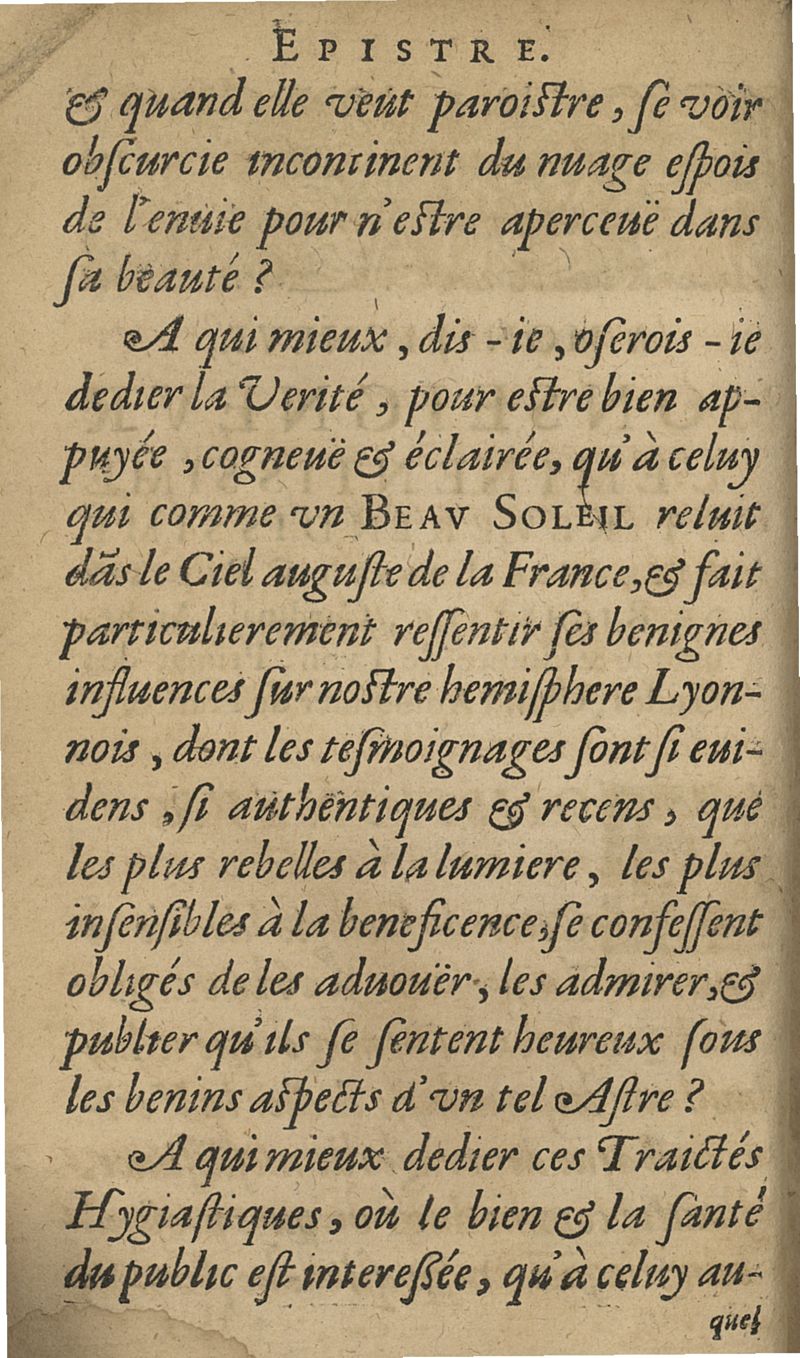 EPISTRE.
& quand elle veut paroiſtre, ſe voir
obſcurcie incontinent du nuage eſpois
de l'enuie pour n'eſtre aperceuë dans
ſa beauté ?
A qui mieux, dis-ie, oſerois-ie
dedier la Verité, pour eſtre bien ap-
puyée, cogneuë & éclairée, qu'à celuy
qui comme vn BEAV SOLEIL reluit
dãs le Ciel auguſte de la France, & fait
particulierement reſſentir ſes benignes
influences ſur noſtre hemiſphere Lyon-
nois, dont les teſmoignages ſont ſi eui-
dens, ſi authentiques & recens, que
les plus rebelles à la lumiere, les plus
inſenſibles à la beneficence, ſe confeſſent
obligés de les aduouër, les admirer, &
publier qu'ils ſe ſentent heureux ſous
les benins aſpects d'vn tel Aſtre ?
A qui mieux dedier ces Traictés
Hygiaſtiques, où le bien & la ſanté
du public eſt intereſſée, qu'à celuy au-
quel